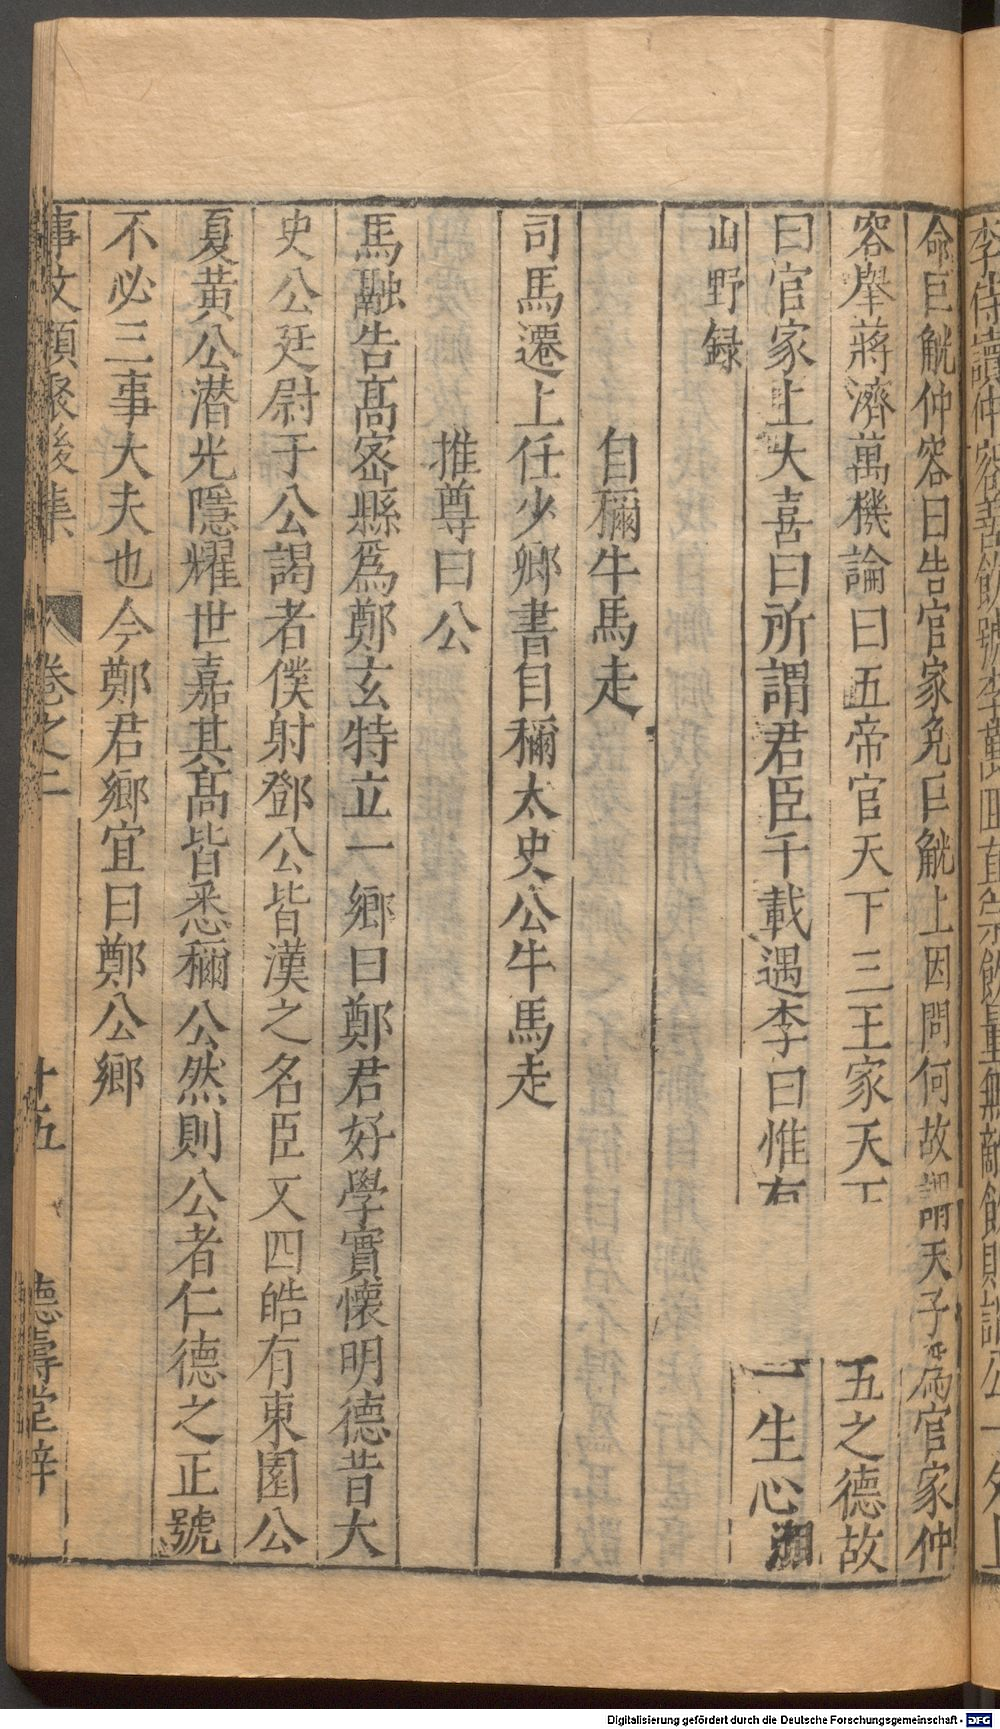 命巨觥仲容曰告官家免巨觥上因問何故謂天子為官家仲
容舉蔣濟萬機論曰五帝官天下三王家天下
五之德故
曰官家上大喜曰所謂君臣千載遇李曰惟有
一生心湘
山野録
自稱牛馬走
司馬遷上任少卿書自稱太史公牛馬走
推尊曰公
馬融告髙宻縣爲鄭玄特立一鄉曰鄭君好學實懐明德昔大
史公廷尉于公謁者僕射鄧公皆漢之名臣又四皓有東園公
夏黃公潜光隱耀世嘉其髙皆悉稱公然則公者仁德之正號
不必三事大夫也今鄭君鄉宜曰鄭公鄉
事文類聚後集
卷之二
十五
德壽堂梓
Digitalisierung gefördert durch die Deutsche Forschungsgemeinschaft - DFG